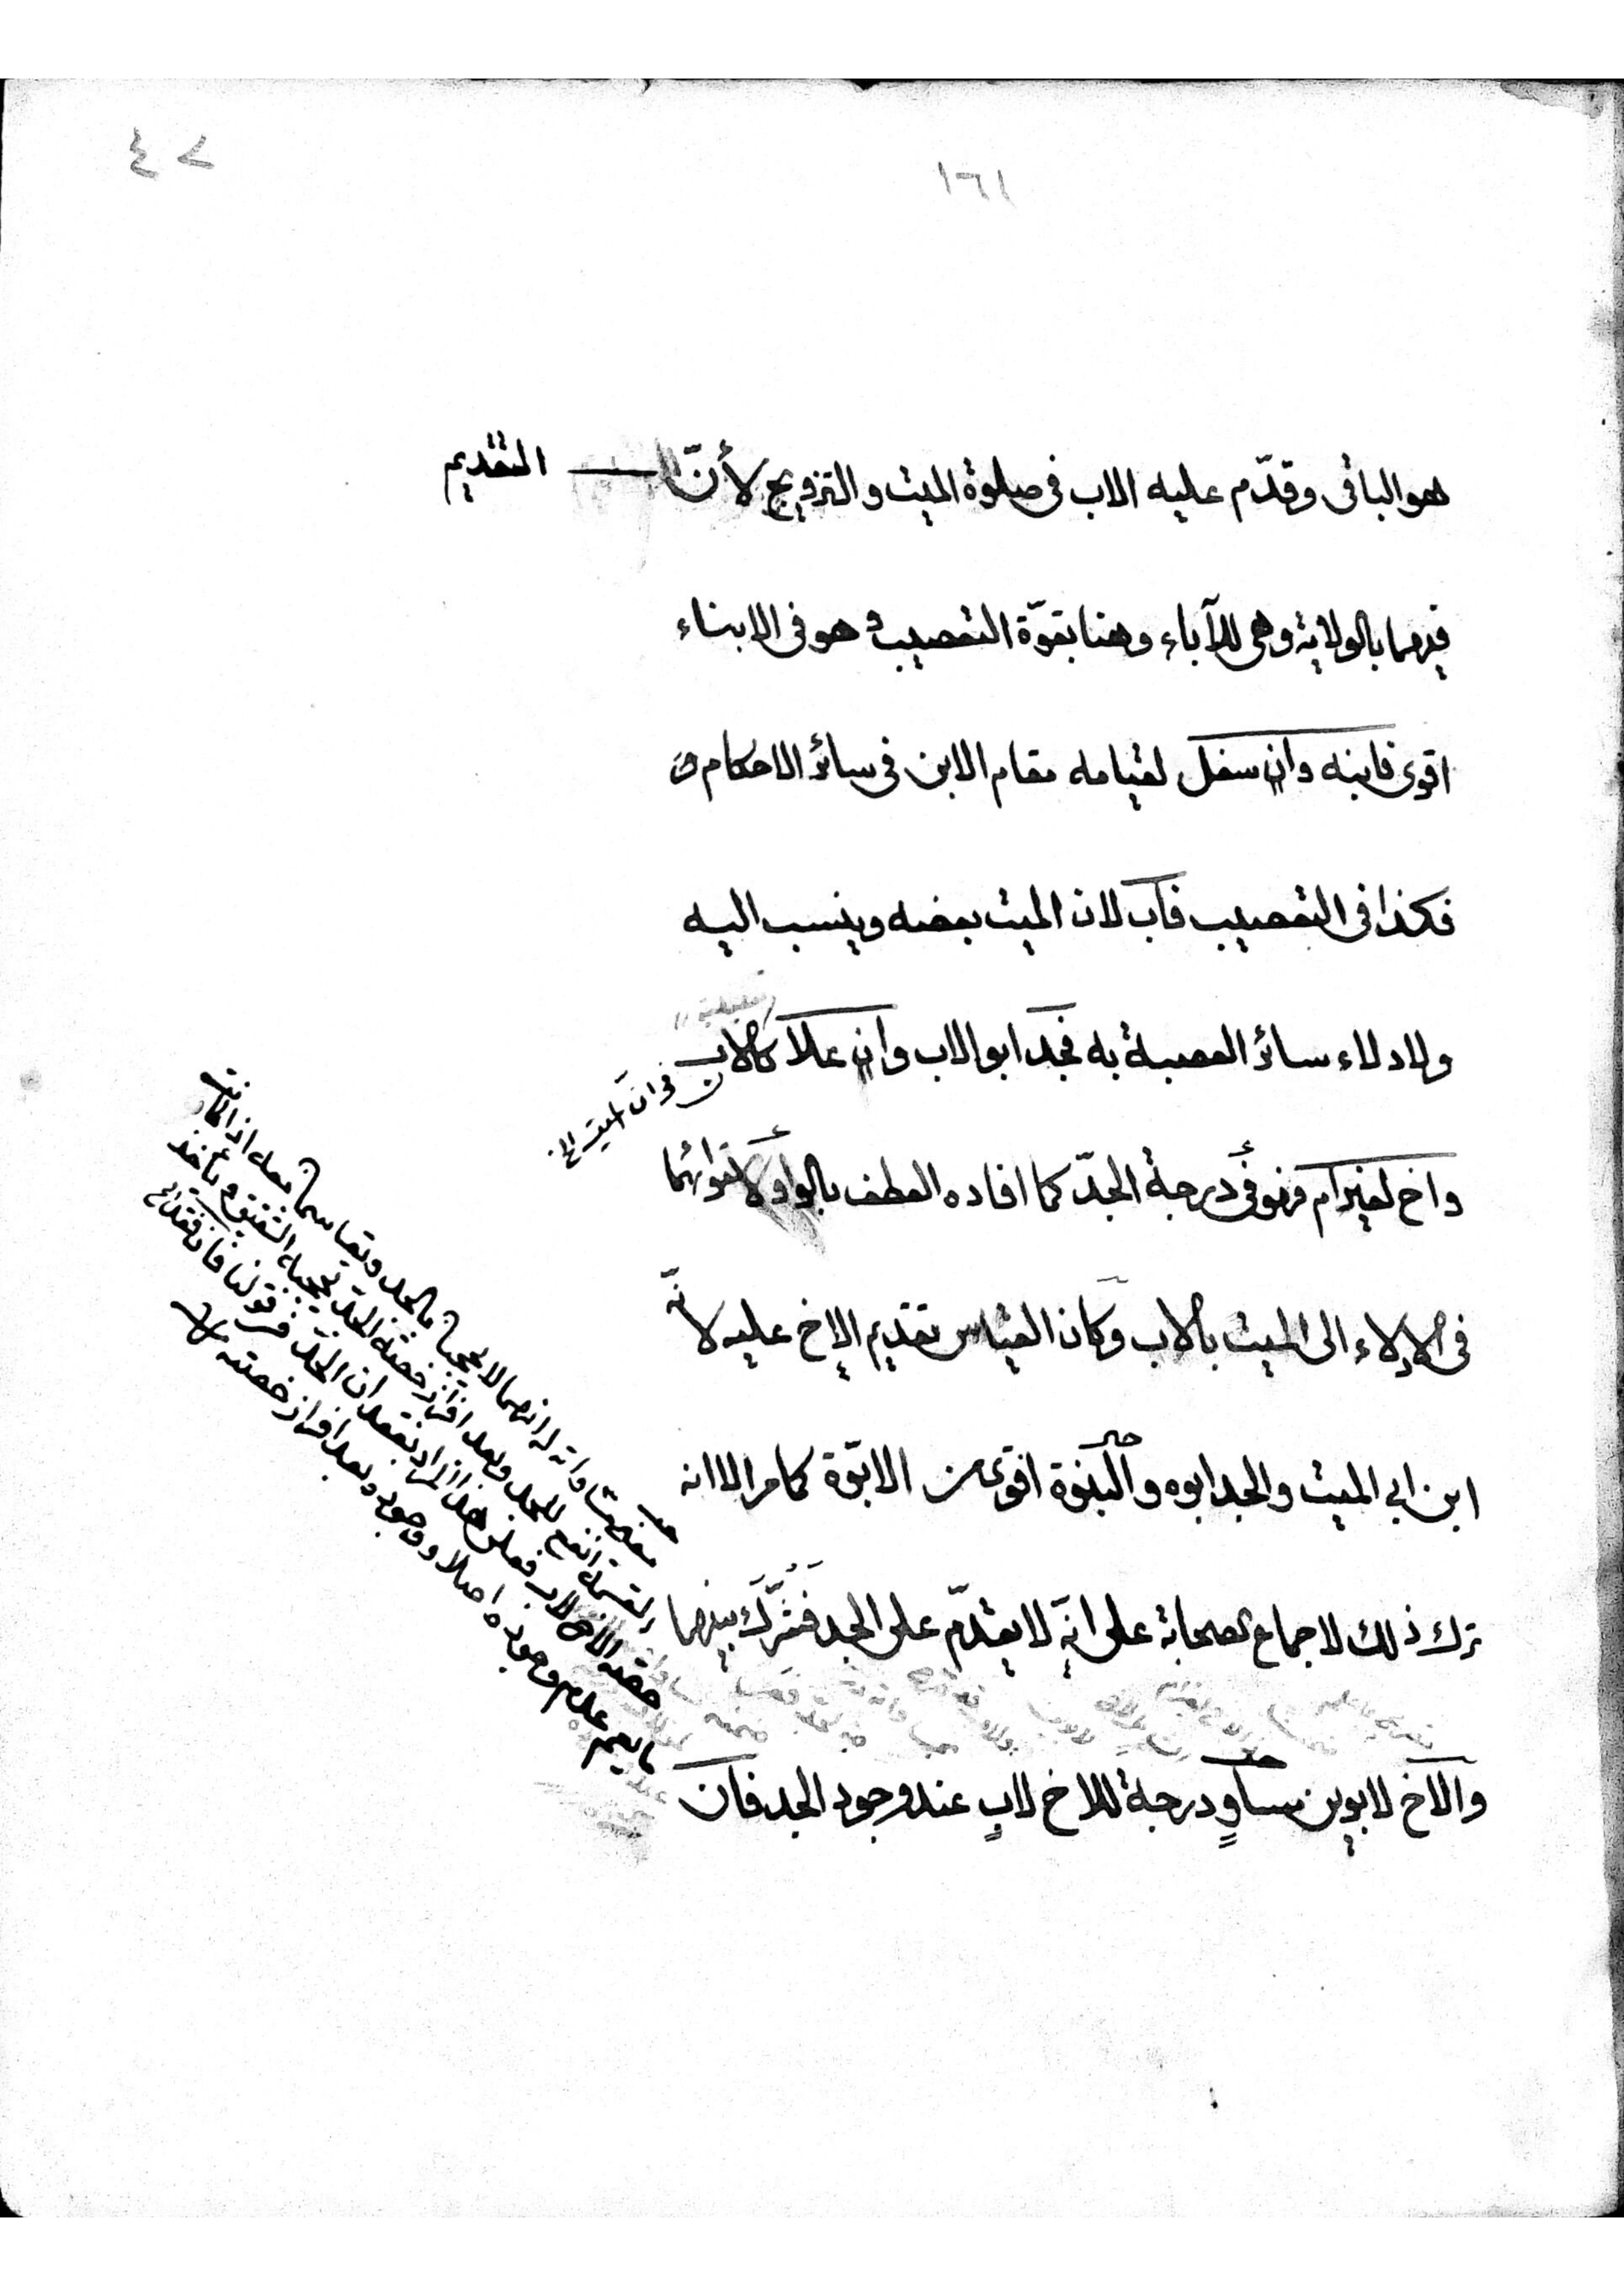 ٤٧
١٦١
هو الباقى وقدّم عليه الاب فى صلوة الميت والتزويج لأنّ التقديم
فيهما بالولاية وهى للآباء وهنا بقوّة التعصيب وهو فى الابناء
اقوى فابنه وان سفل لقيامه مقام الابن فى سائر الاحكام
فكذا فى التعصيب فأب لان الميت بعضه وينسب اليه
ولادلاء سائر العصبة به فجد ابو الاب وان علا كالاب
فى ان الميت الخ
واخ لغير ام فهو فى درجة الجدّ كما افاده العطف بالواو لاستوائهما
فى الادلاء الى الميت بالاب وكان القياس تقديم الاخ عليه لانّه
ابن ابي الميت والجد ابوه والبنوة اقوى من الابوّة كما مر الا انه
ترك ذلك لاجماع الصحابة على انّه لا يقدّم على الجد فشرّك بينهما
والاخ لابوين مساوٍ درجة للاخ لابٍ عند وجود الجد فان
لانهما لا يحجبا بالجد ويقاسما معه اذا كانت
القسمة انفع للجد وبعد افراز حصّة الجدّ يحجبه الشقيق ويأخذ
حصّة الاخ لاب فعلى هذا المراد بفقدان الجدّ فى قولنا فان فقد الخ
ما يعم عدم وجوده اصلا ووجوده وبعد افراز حصّته